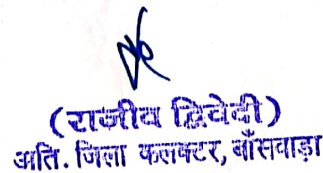 (राजीव द्विवेदी)
अति. जिला कलक्टर, बाँसवाड़ा